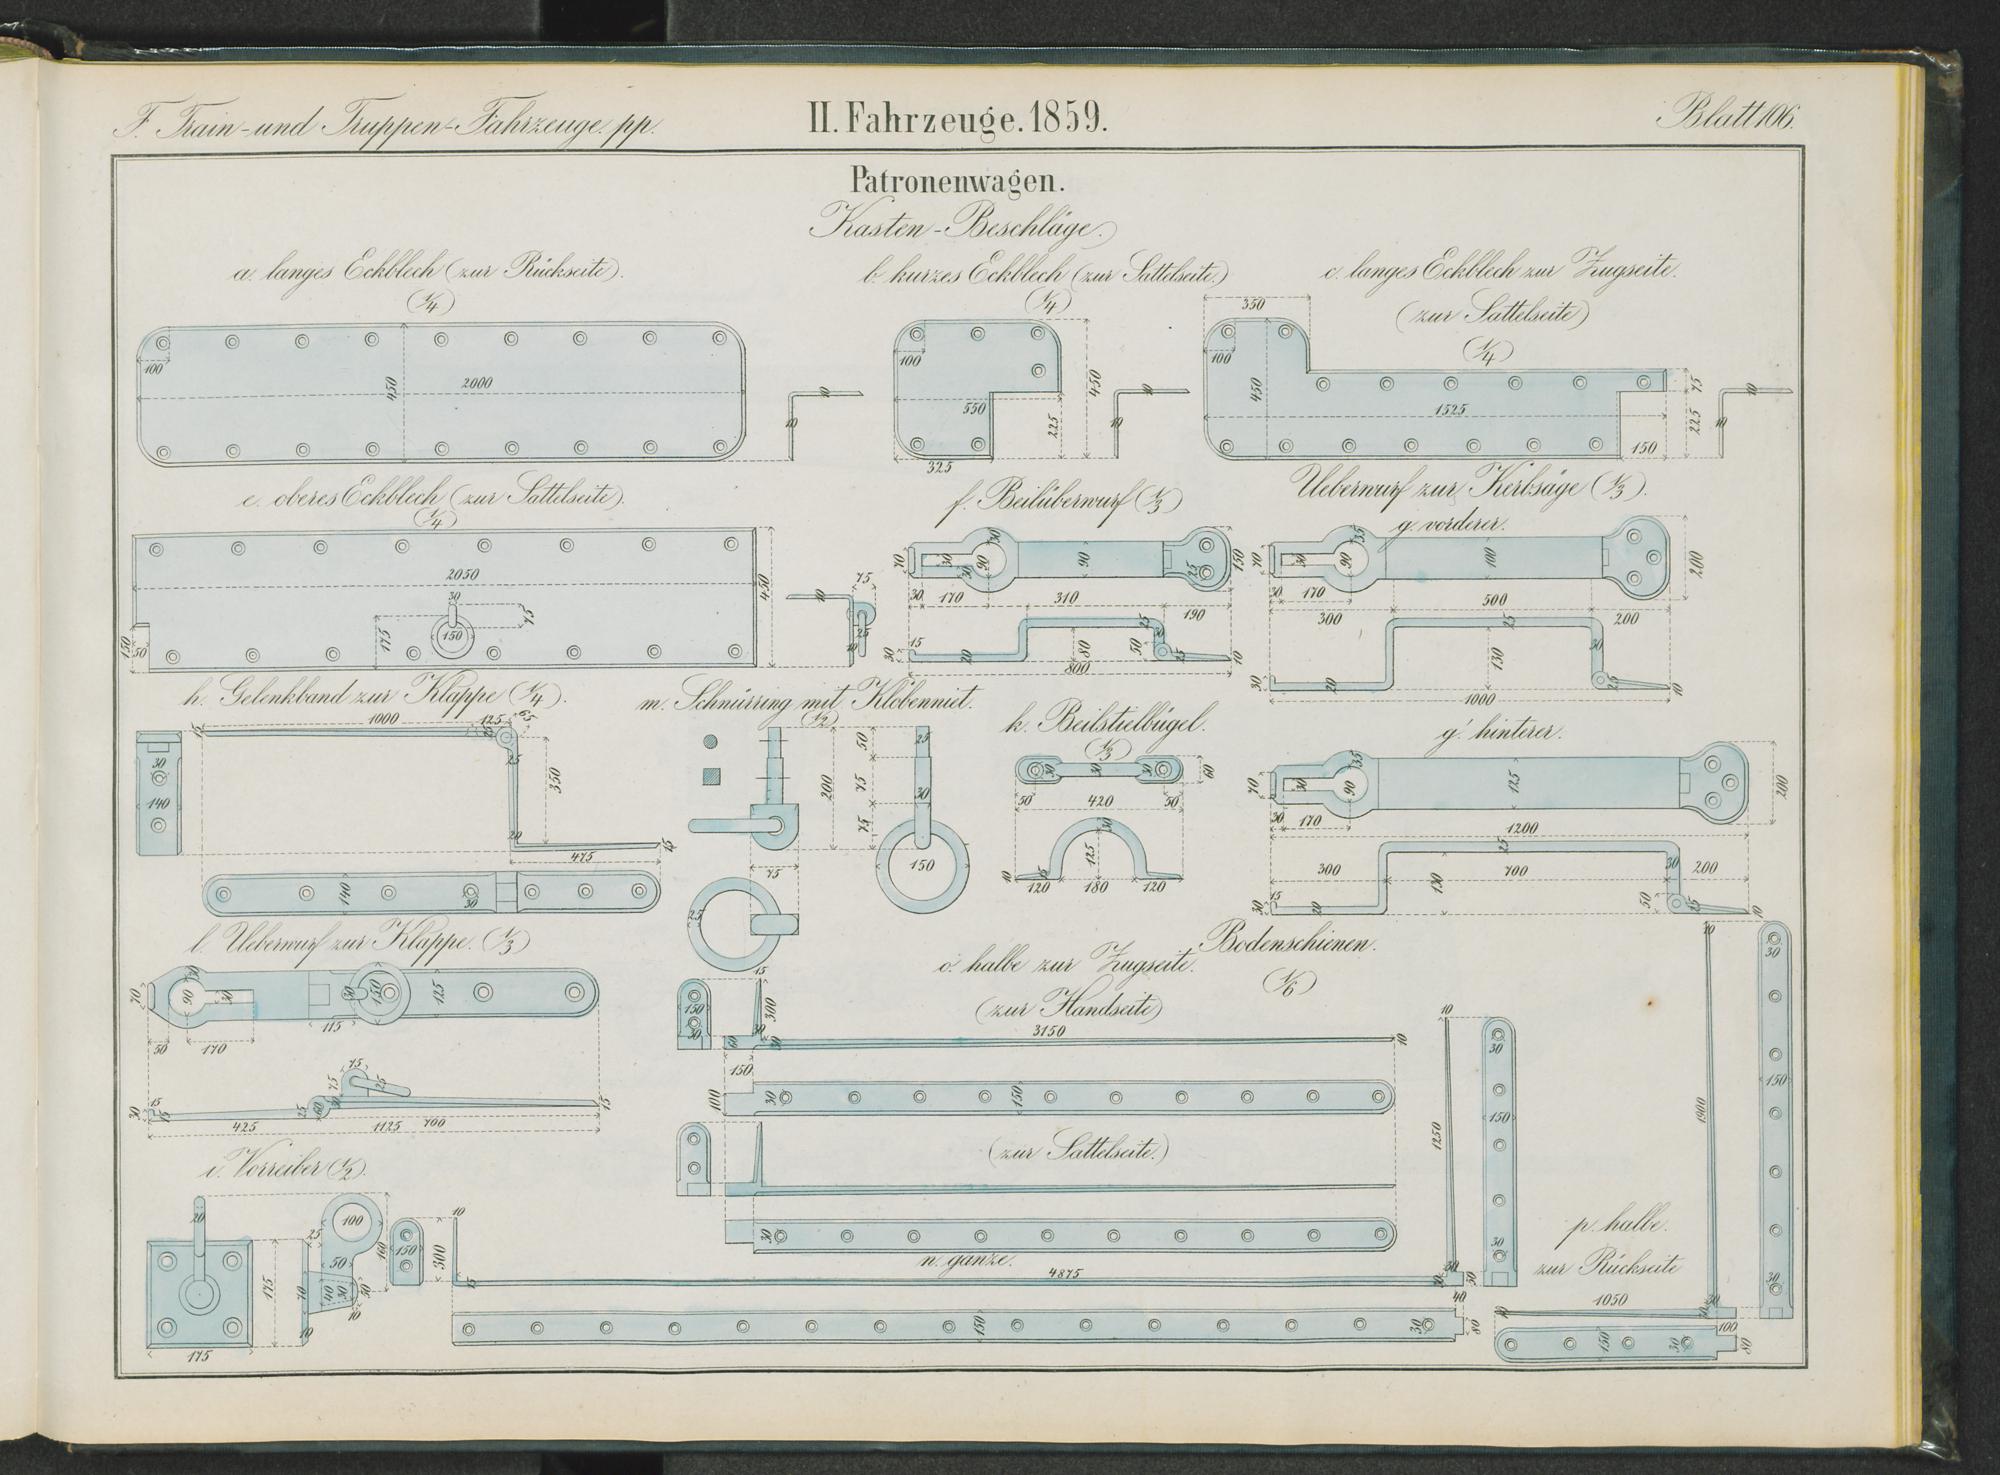 F. Train- und Truppen-Fahrzeuge pp.
II. Fahrzeuge. 1859.
Blatt 106.
Patronenwagen.
Kasten-Beschläge.
a. langes Eckblech (zur Rückseite).
(1/4)
100
450
2000
10
10
b. kurzes Eckblech (zur Sattelseite.)
(1/4)
100
550
325
225
450
10
10
c. langes Eckblech zur Zugseite.
(zur Sattelseite)
(1/4)
350
100
450
1525
150
75
225
10
10
e. oberes Eckblech (zur Sattelseite).
(1/4)
2050
30
75
175
150
450
150
50
10
75
25
10
f. Beilüberwurf (1/3)
70
30
30
90
30
90
25
150
30
170
310
190
15
30
20
80
25
50
25
10
800
Ueberwurf zur Kerbsäge (1/3).
g. vorderer.
70
30
90
35
100
200
30
170
500
300
200
25
130
30
30
20
25
10
1000
h. Gelenkband zur Klappe (1/4).
30
140
15
1000
125
65
25
25
350
20
475
15
140
30
m. Schnürring mit Klobenniet.
(1/2)
200
50
75
75
25
30
150
75
25
k. Beilstielbügel.
(1/3)
30
30
30
60
50
420
50
30
125
10
15
120
180
120
g'. hinterer.
70
30
90
35
125
200
30
170
1200
25
300
130
700
30
200
15
30
20
50
25
10
l. Ueberwurf zur Klappe. (1/3)
70
90
30
30
30
150
125
115
50
170
75
75
25
30
15
15
25
60
30
15
425
1125
700
Bodenschienen.
(1/6)
o. halbe zur Zugseite.
(zur Handseite)
150
30
15
300
30
60
3150
10
150
100
30
150
(zur Sattelseite.)
30
i. Vorreiber (1/2).
20
175
175
25
100
50
160
70
40
30
30
10
10
n. ganze.
150
300
10
15
4875
150
30
40
80
10
1250
30
150
30
50
p. halbe.
zur Rückseite
10
1900
30
150
30
1050
10
100
150
30
80